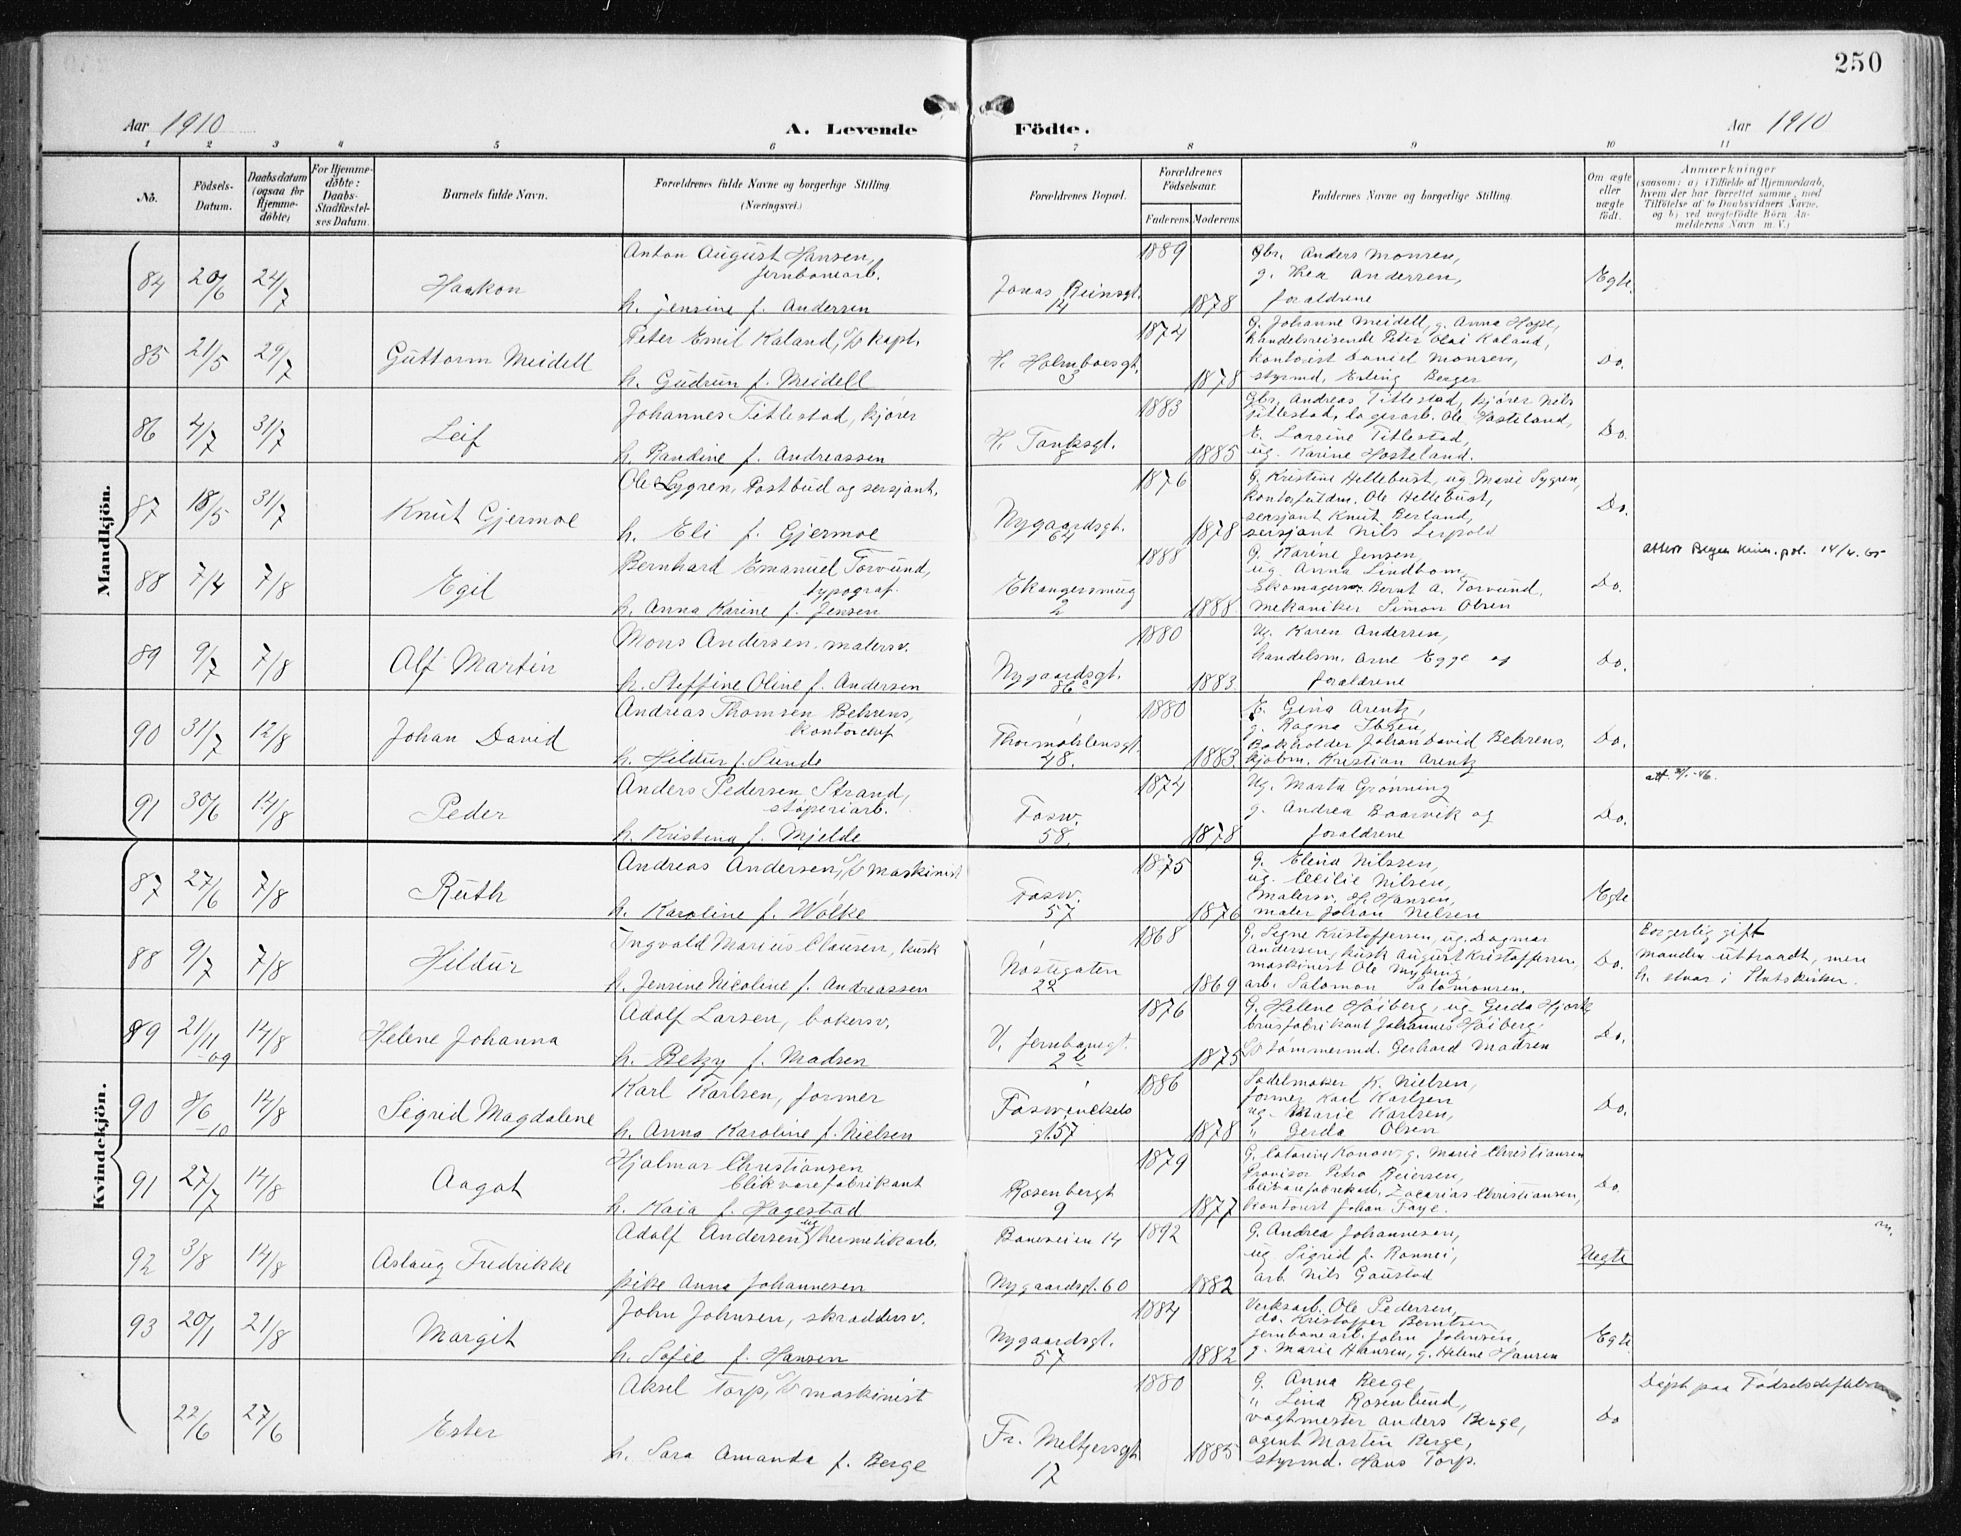 250
Aar 1910
A. Levende
Födte.
Aar 1910
1 2 3 4 5 6 7 8 9 10 11
No.
Födsels-
Datum.
Daabsdatum
(ogsaa for
Hjemme-
döbte)
For Hjemme-
döbte:
Daabs-
Stadfæstel-
ses Datum.
Barnets fulde Navn.
Forældrenes fulde Navne og borgerlige Stilling.
(Næringsvei.)
Forældrenes Bopæl.
Forældrenes
Födselsaar.
Faderens Moderens
Faddernes Navne og borgerlige Stilling.
Om ægte
eller
uægte
födt.
Anmærkninger
(saasom: a) i Tilfælde af Hjemmedaab,
hvem der har forrettet samme, med
Tilföielse af to Daabsvidners Navne,
og b) ved uægtefödte Börn An-
melderens Navn m. V.)
Mandkjön.
84 20/6 24/7 Haakon
Anton August Hansen,
jernbanearb.
h. Jensine f. Andersen
Jonas Reinsgt.
14
1889 1878
Gbr. Anders Monsen,
g. Thea Andersen,
forældrene
Egte.
85 21/5 29/7 Guttorm Meidell
Peter Emil Kaland, kapt.
h. Gudrun f. Meidell
H. Holmboesgt.
3
1874 1878
G. Johanne Meidell, g. Anna Hope,
handelsreisende Peter Olai Kaland,
kontorist Daniel Monsen,
styrmd. Erling Berger
Do.
86 4/7 31/7 Leif
Johannes Titlestad, kjører
h. Randine f. Andreassen
H. Tanksgt.
1883 1885
Gbr. Andreas Titlestad, kjører Nils
Titlestad, lagerarb. Ole Hosteland,
E. Lorrine Titlestad,
ug. Karine Hosteland.
Do.
87 18/5 31/7 Knut Gjermoe
Ole Sygren, Postbud og sersjant,
h. Eli f. Gjermoe
Nygaardsgt.
64
1876 1878
G. Kristine Hellebust, ug. Marie Sygren,
Ole Hellebust,
sersjant Knut Berland,
sersjant Nils
Do.
88 7/4 7/8 Egil
Bernhard Emanuel Torvund,
typograf.
h. Anna Karine f. Jensen
Ekangersmug
2
1888 1888
G. Karine Jensen,
ug. Anna Lindbom,
Skomagersv. Bernt A. Torvund,
mekaniker Simon Olsen
Do.
attest Bergen 14/4. 65
89 9/7 7/8 Alf Martin
Mons Andersen, malersv.
h. Steffine Oline f. Andersen
Nygaardsgt.
86a
1880 1883
Ug. Karen Andersen,
handelsm. Arne Egge og
forældrene
Do.
90 31/7 12/8 Johan David
Andreas Thomsen Behrens,
kontorchef
h. Hildur f. Sunde
Thormøhlensgt.
48.
1880 1883
E. Gina Arentz,
g. Ragna Ibsen,
Bokholder Johan David Behrens,
kjøbm. Kristian Arentz
Do.
91 30/6 14/8 Peder
Anders Pedersen Strand,
støperiarb.
h. Kristina f. Mjelde
Fosw.
58.
1874 1878
Ug. Marta Grønning
g. Andrea Baarvik og
forældrene
Do.
Kvindekjön.
87 27/6 7/8 Ruth
Andreas Andersen, maskinist
h. Karoline f. Wolke
Fosw.
57
1875 1876
G. Elina Nilssen,
ug. Cecilie Nilsen,
Malersv. H. Hansen,
maler Johan Nilsen
Egte
88 9/7 7/8 Hildur
Ingvald Marius Clausen, kusk
h. Jensine Nicoline f. Andreassen
Nøstegaten
22
1868 1869
G. Signe Kristoffersen, ug. Dagmar
Andersen, kusk August Kristoffersen,
maskinist Ole Myking,
arb. Salomon Salomonsen.
Do.
Borgerlig gift
manden uttraadt, men
h. staar i Statskirken.
89 21/11 -09 14/8 Helene Johanna
Adolf Larsen, bakersv.
h. Betzy f. Madsen
V. Jernbanegt.
2b
1876 1875
G. Helene Høiberg, ug. Gerda Hjorth
brusfabrikant Johannes Høiberg,
tømmermd. Gerhard Madsen
Do.
90 8/6 -10 14/8 Sigrid Magdalene
Karl Karlsen, former
h. Anna Karoline f. Nielsen
Foswinckels
gt. 57
1886 1878
Sadelmaker K. Nielsen,
former Karl Karlsen
ug. Marie Karlsen,
" Gerda Olsen
Do.
91 27/7 14/8 Aagot
Hjalmar Christiansen
blikvarefabrikant
h. Kaia f. Hagestad
Rosenbergt
9
1879 1877
G. Catarina Konow g. Marie Christiansen
Provisor Petra Reiersen,
blikvarefabrikant Zacarias Christiansen,
kontorist Johan Faye.
Do.
92 3/8 14/8 Aslaug Fredrikke
Adolf Andersen, ug hermetikarb.
pike Anna Johannesen
Baneveien 14
Nygaardsgt. 60
1892 1882
G. Andrea Johannesen,
ug. Sigrid f. Ronnei,
arb. Nils Gaustad
Uegte
m.
93 20/1 21/8 Margit
John Johnsen, skræddersv.
h. Sofie f. Hansen
Nygaardsgt.
57
1884 1882
Verksarb. Ole Pedersen,
do. Kristoffer Berntsen
jernbanearb. John Johnsen,
g. Marie Hansen, g. Helene Hansen
Egte
22/6 27/6 Ester
Aksel Torp, maskinist
h. Sara Amanda f. Berge
Fr. Meltzersgt.
17
1880 1885
G. Anna Berge,
" Lina Rosenlund,
vagtmester Anders Berge,
agent Martin Berge,
styrmd. Hans Torp.
Do
Døpt paa Fødselsstiftelsen